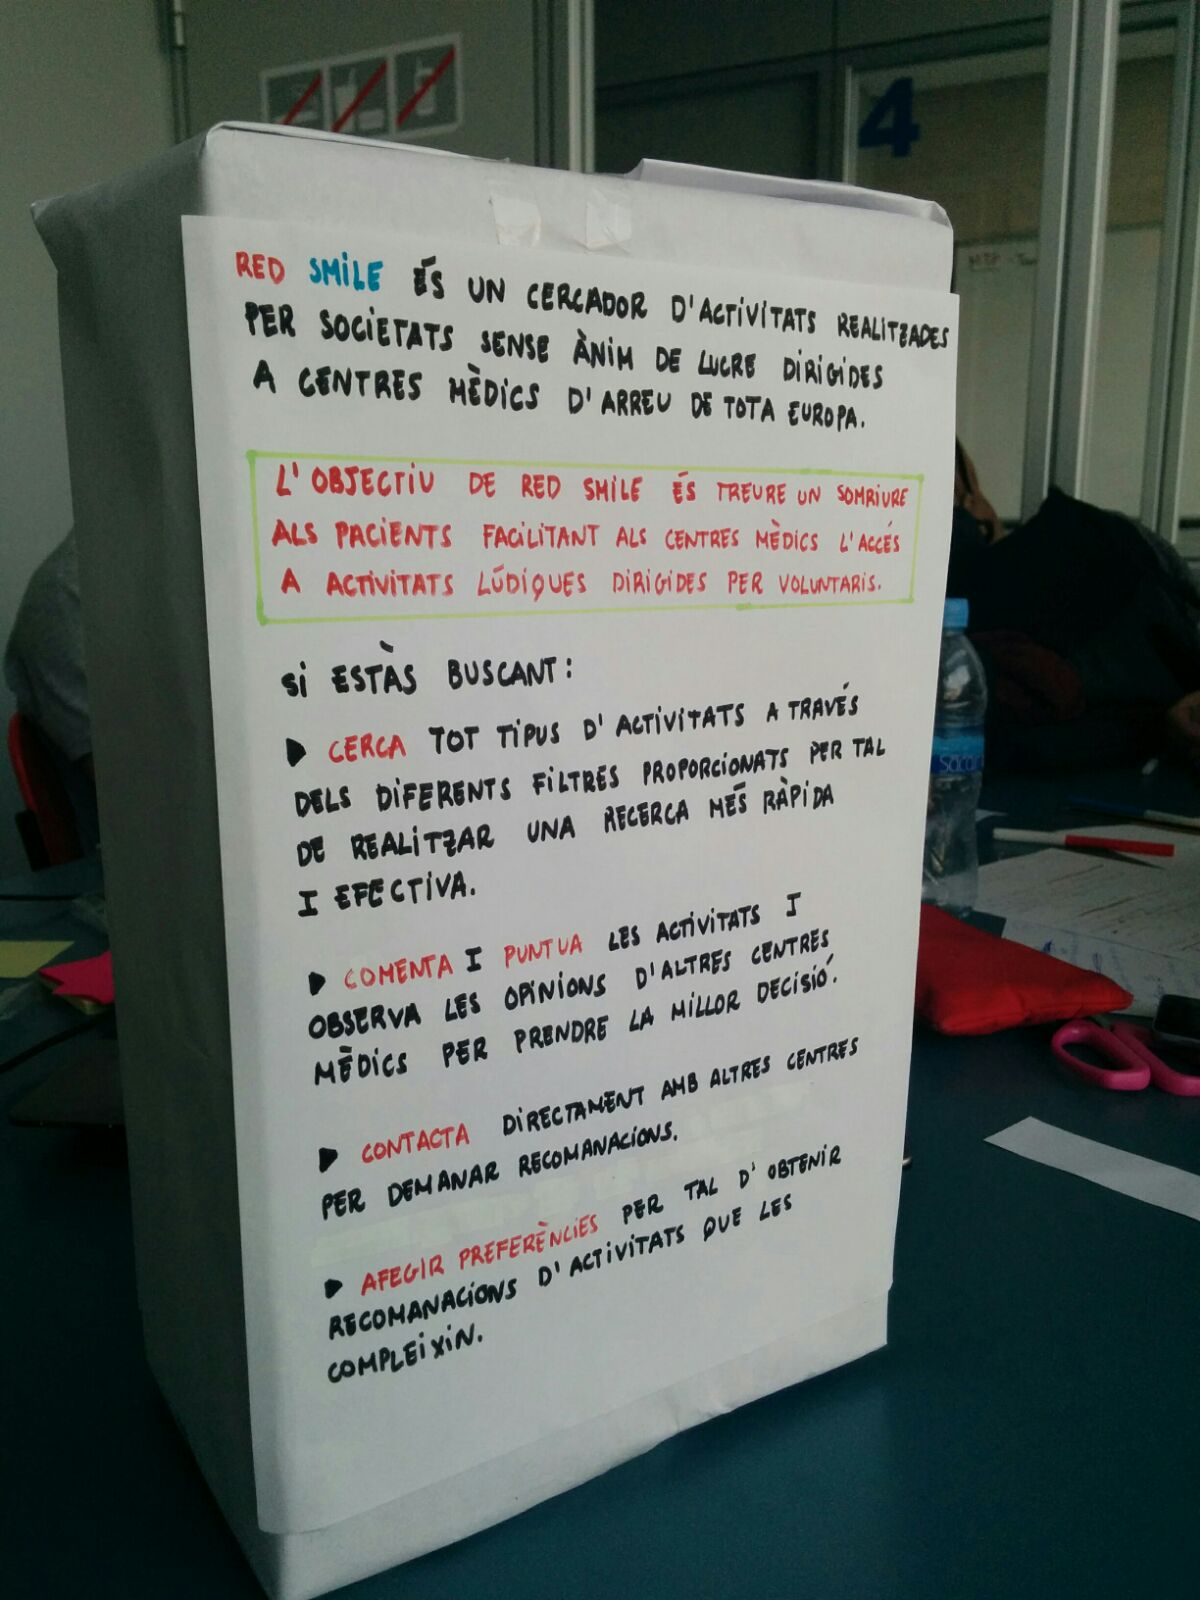 4
RED SMILE ÉS UN CERCADOR D'ACTIVITATS REALITZADES
PER SOCIETATS SENSE ÀNIM DE LUCRE DIRIGIDES
A CENTRES MÈDICS D'ARREU DE TOTA EUROPA.
L'OBJECTIU DE RED SMILE ÉS TREURE UN SOMRIURE
ALS PACIENTS FACILITANT ALS CENTRES MÈDICS L'ACCÉS
A ACTIVITATS LÚDIQUES DIRIGIDES PER VOLUNTARIS.
SI ESTÀS BUSCANT:
▶ CERCA TOT TIPUS D'ACTIVITATS A TRAVÉS
DELS DIFERENTS FILTRES PROPORCIONATS PER TAL
DE REALITZAR UNA RECERCA MÉS RÀPIDA
I EFECTIVA.
▶ COMENTA I PUNTUA LES ACTIVITATS I
OBSERVA LES OPINIONS D'ALTRES CENTRES
MÈDICS PER PRENDRE LA MILLOR DECISIÓ.
▶ CONTACTA DIRECTAMENT AMB ALTRES CENTRES
PER DEMANAR RECOMANACIONS.
▶ AFEGIR PREFERÈNCIES PER TAL D'OBTENIR
RECOMANACIONS D'ACTIVITATS QUE LES
COMPLEIXIN.